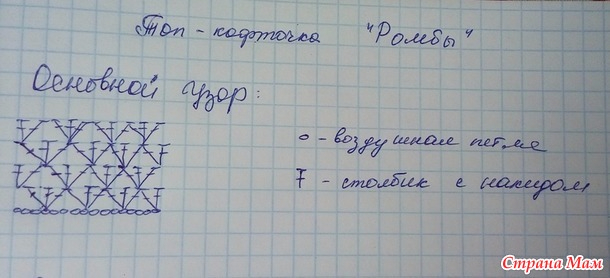 Топ-кофточка "Ромбы"
Основной узор:
о - воздушная петля
Ŧ - столбик с накидом
Страна Мам